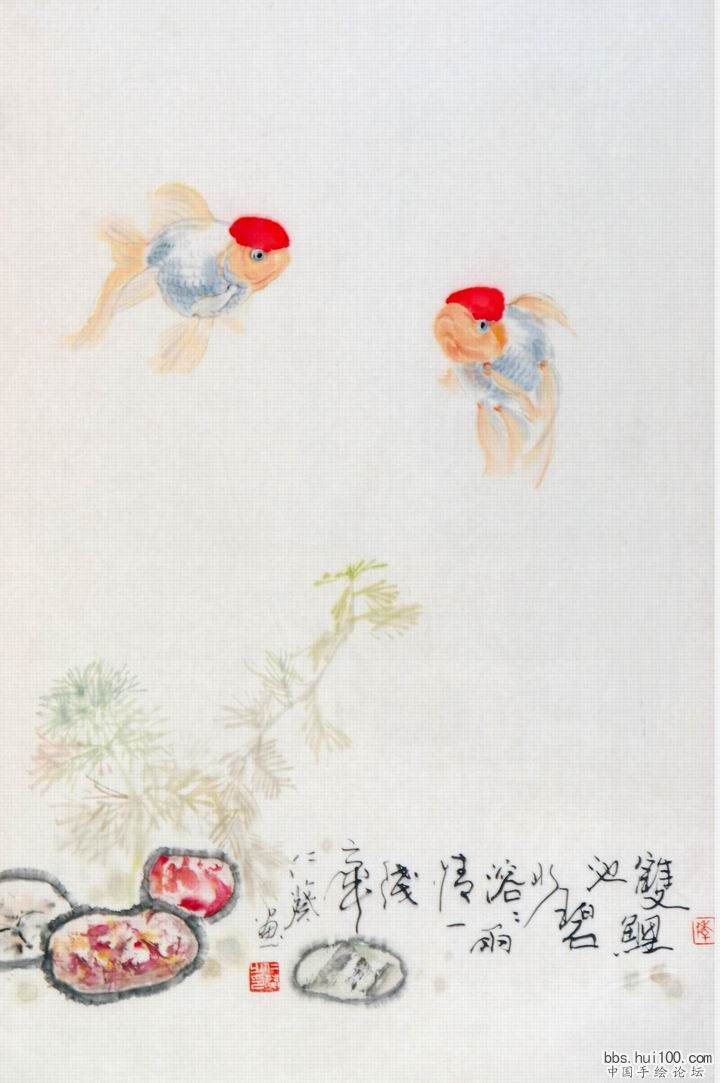 雙鯉
池
水碧
溶〻雨
情一
淺
仁
畫
bbs.hui100.com
中国手绘论坛